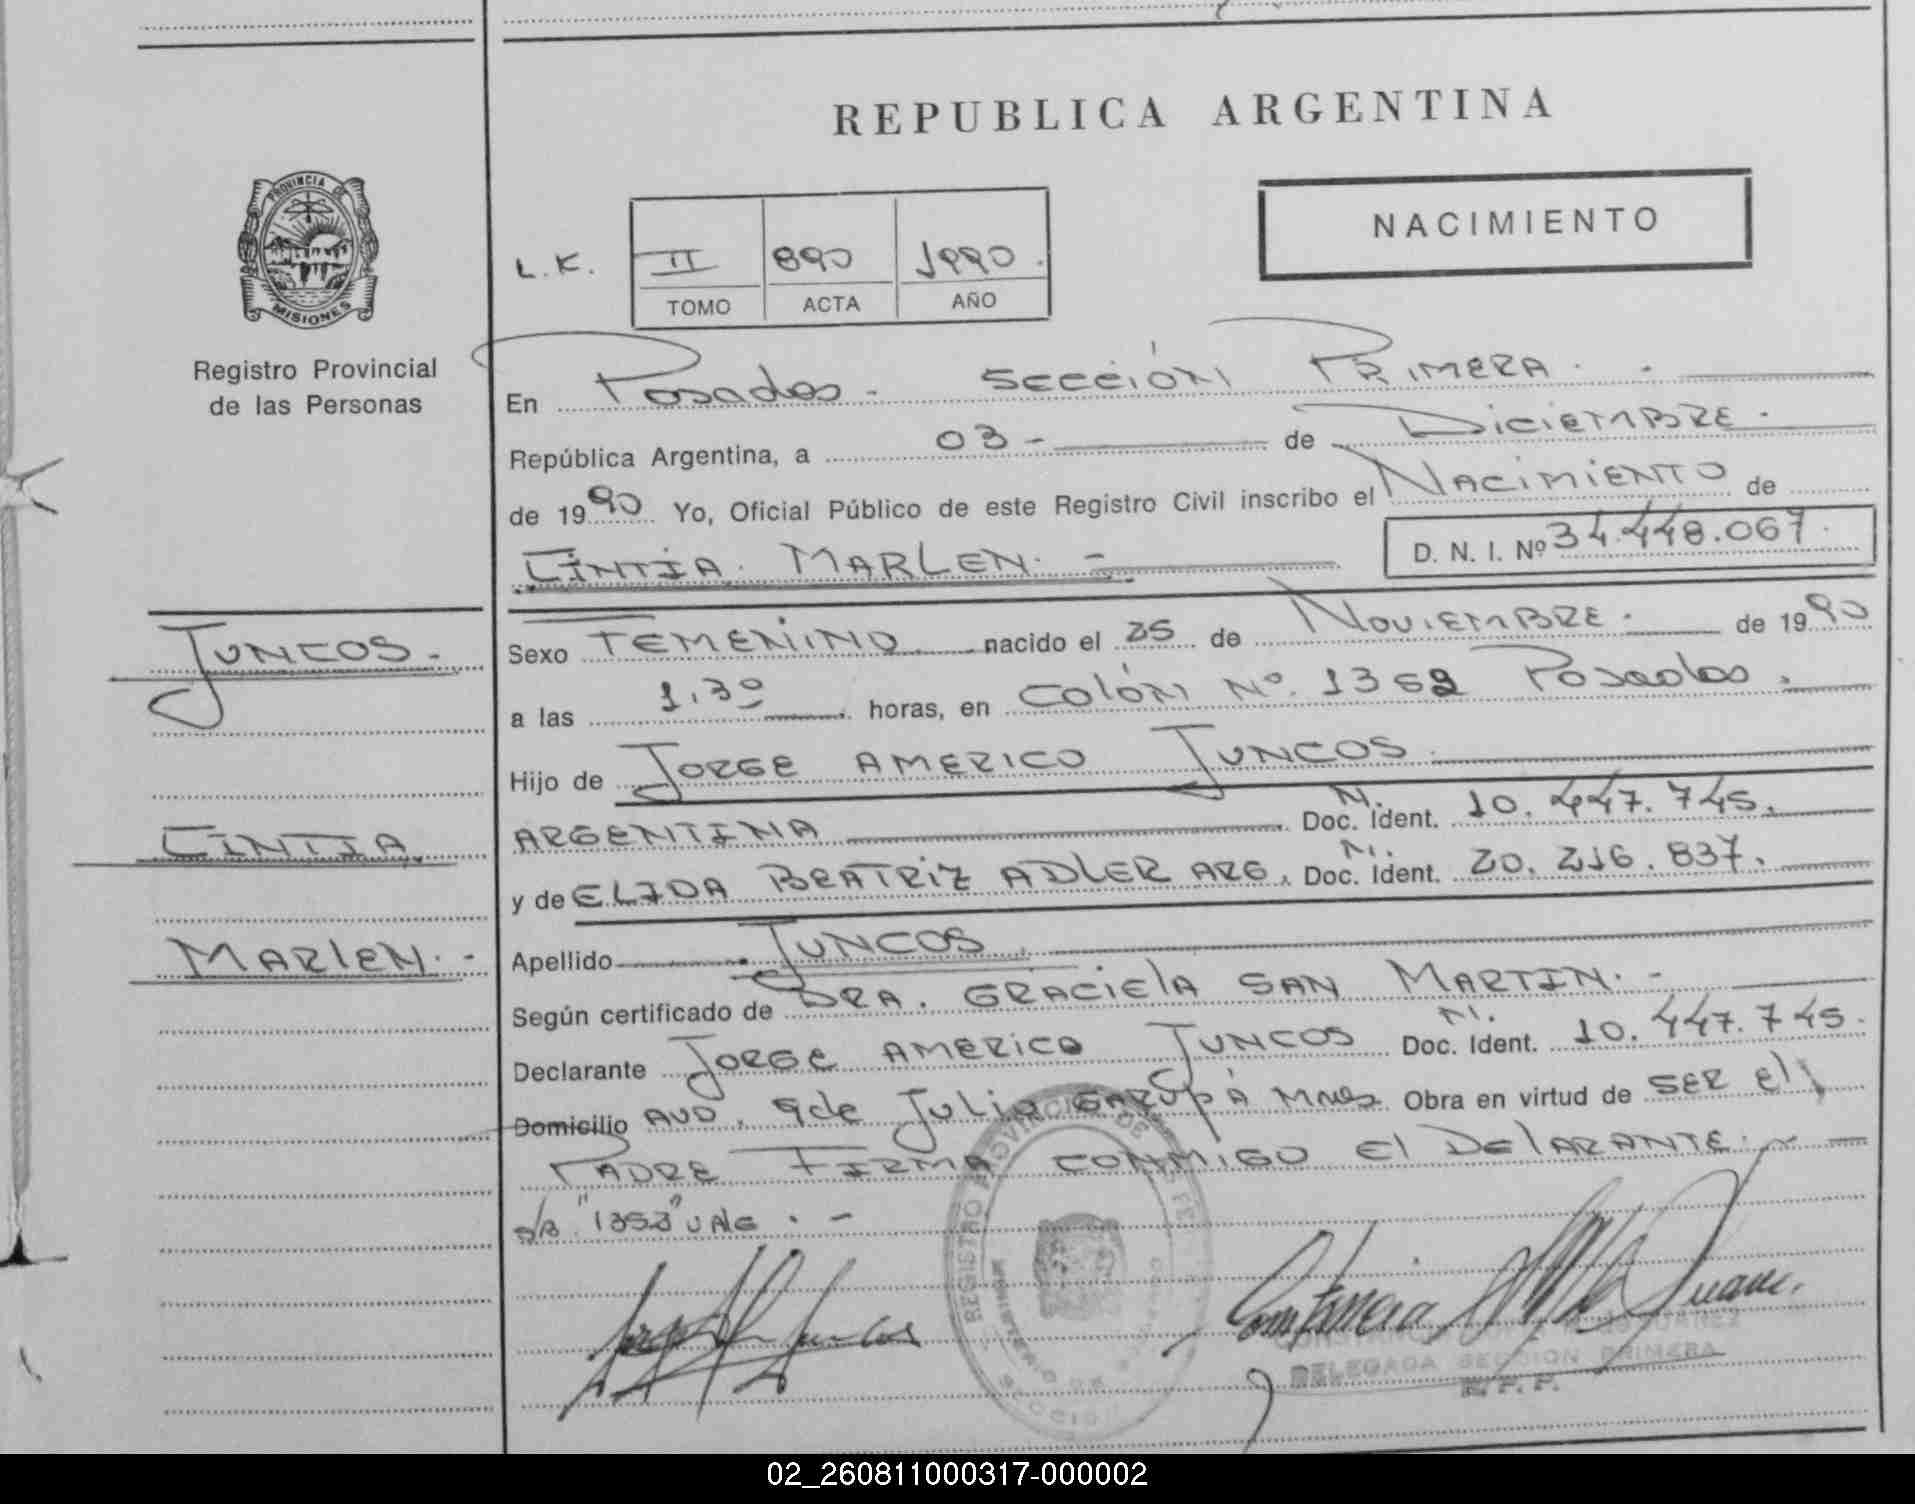 REPUBLICA ARGENTINA
NACIMIENTO
L.K. II 890 1990.
TOMO ACTA AÑO
PROVINCIA DE
MISIONES
Registro Provincial
de las Personas
En Posadas - Sección Primera. -
República Argentina, a 03 - de Diciembre.
de 1990 Yo, Oficial Público de este Registro Civil inscribo el Nacimiento de
Cintia Marlen. -
D. N. I. Nº 34.448.067.
Juncos.-
Sexo Femenino nacido el 25 de Noviembre. de 1990
a las 1.30 horas, en Colón Nº. 1362 Posadas.
Hijo de Jorge Americo Juncos.
Argentina M. Doc. Ident. 10.447.745.
Cintia
y de Elida Beatriz Adler Arg. M. Doc. Ident. 20.216.837.
Marlen.-
Apellido Juncos.
Según certificado de Dra. Graciela San Martin. -
Declarante Jorge Americo Juncos M. Doc. Ident. 10.447.745.
Domicilio Avd. 9 de Julio Garupá Mnes Obra en virtud de ser el
Padre Firma conmigo el Delarante. -
s/b "1353" vale. -
REGISTRO PROVINCIAL DE
MINISTERIO DE
Jorge A Juncos
DELEGADA SECCION PRIMERA
R. P. P.
02_260811000317-000002